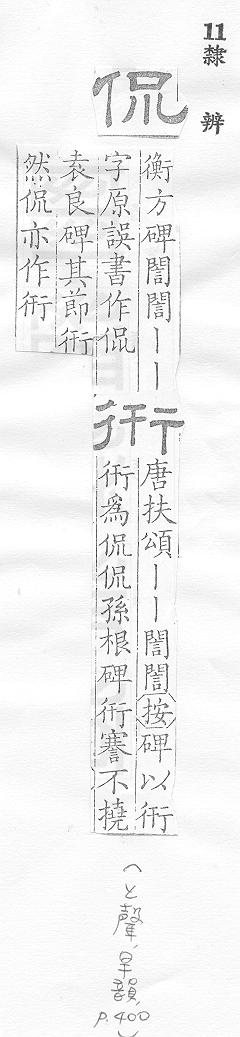 11 隸辨
侃
衡方碑誾誾丨丨
字原誤書作侃
衎
唐扶頌丨丨誾誾按碑以衎
衎爲侃侃孫根碑衎謇不撓
袁良碑其節衎
然侃亦作衎
(上聲,旱韻,p.400)